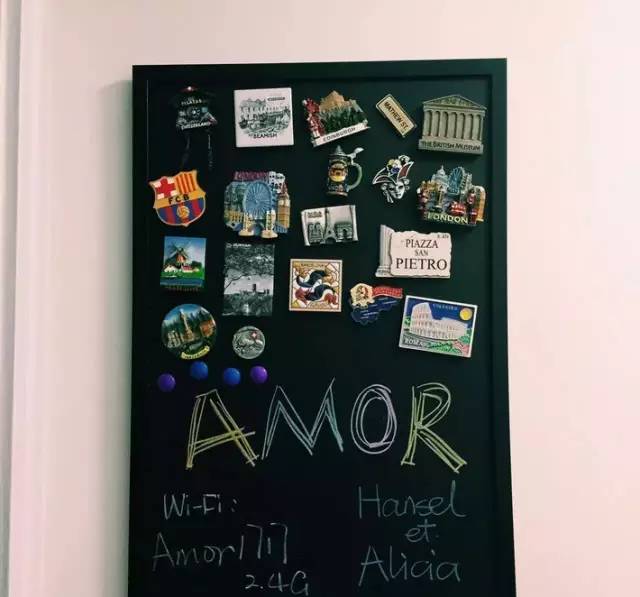 PILATUS
SWITZERLAND
BEAMISH
EDINBURGH
MATHEW ST.
THE BRITISH MUSEUM
FCB
LONDON
PIAZZA
SAN
PIETRO
DURHAM
BARCELONA
ROMA
AMOR
Wi-Fi:
Amor1717
2.4G
Hansel
et
Alicia